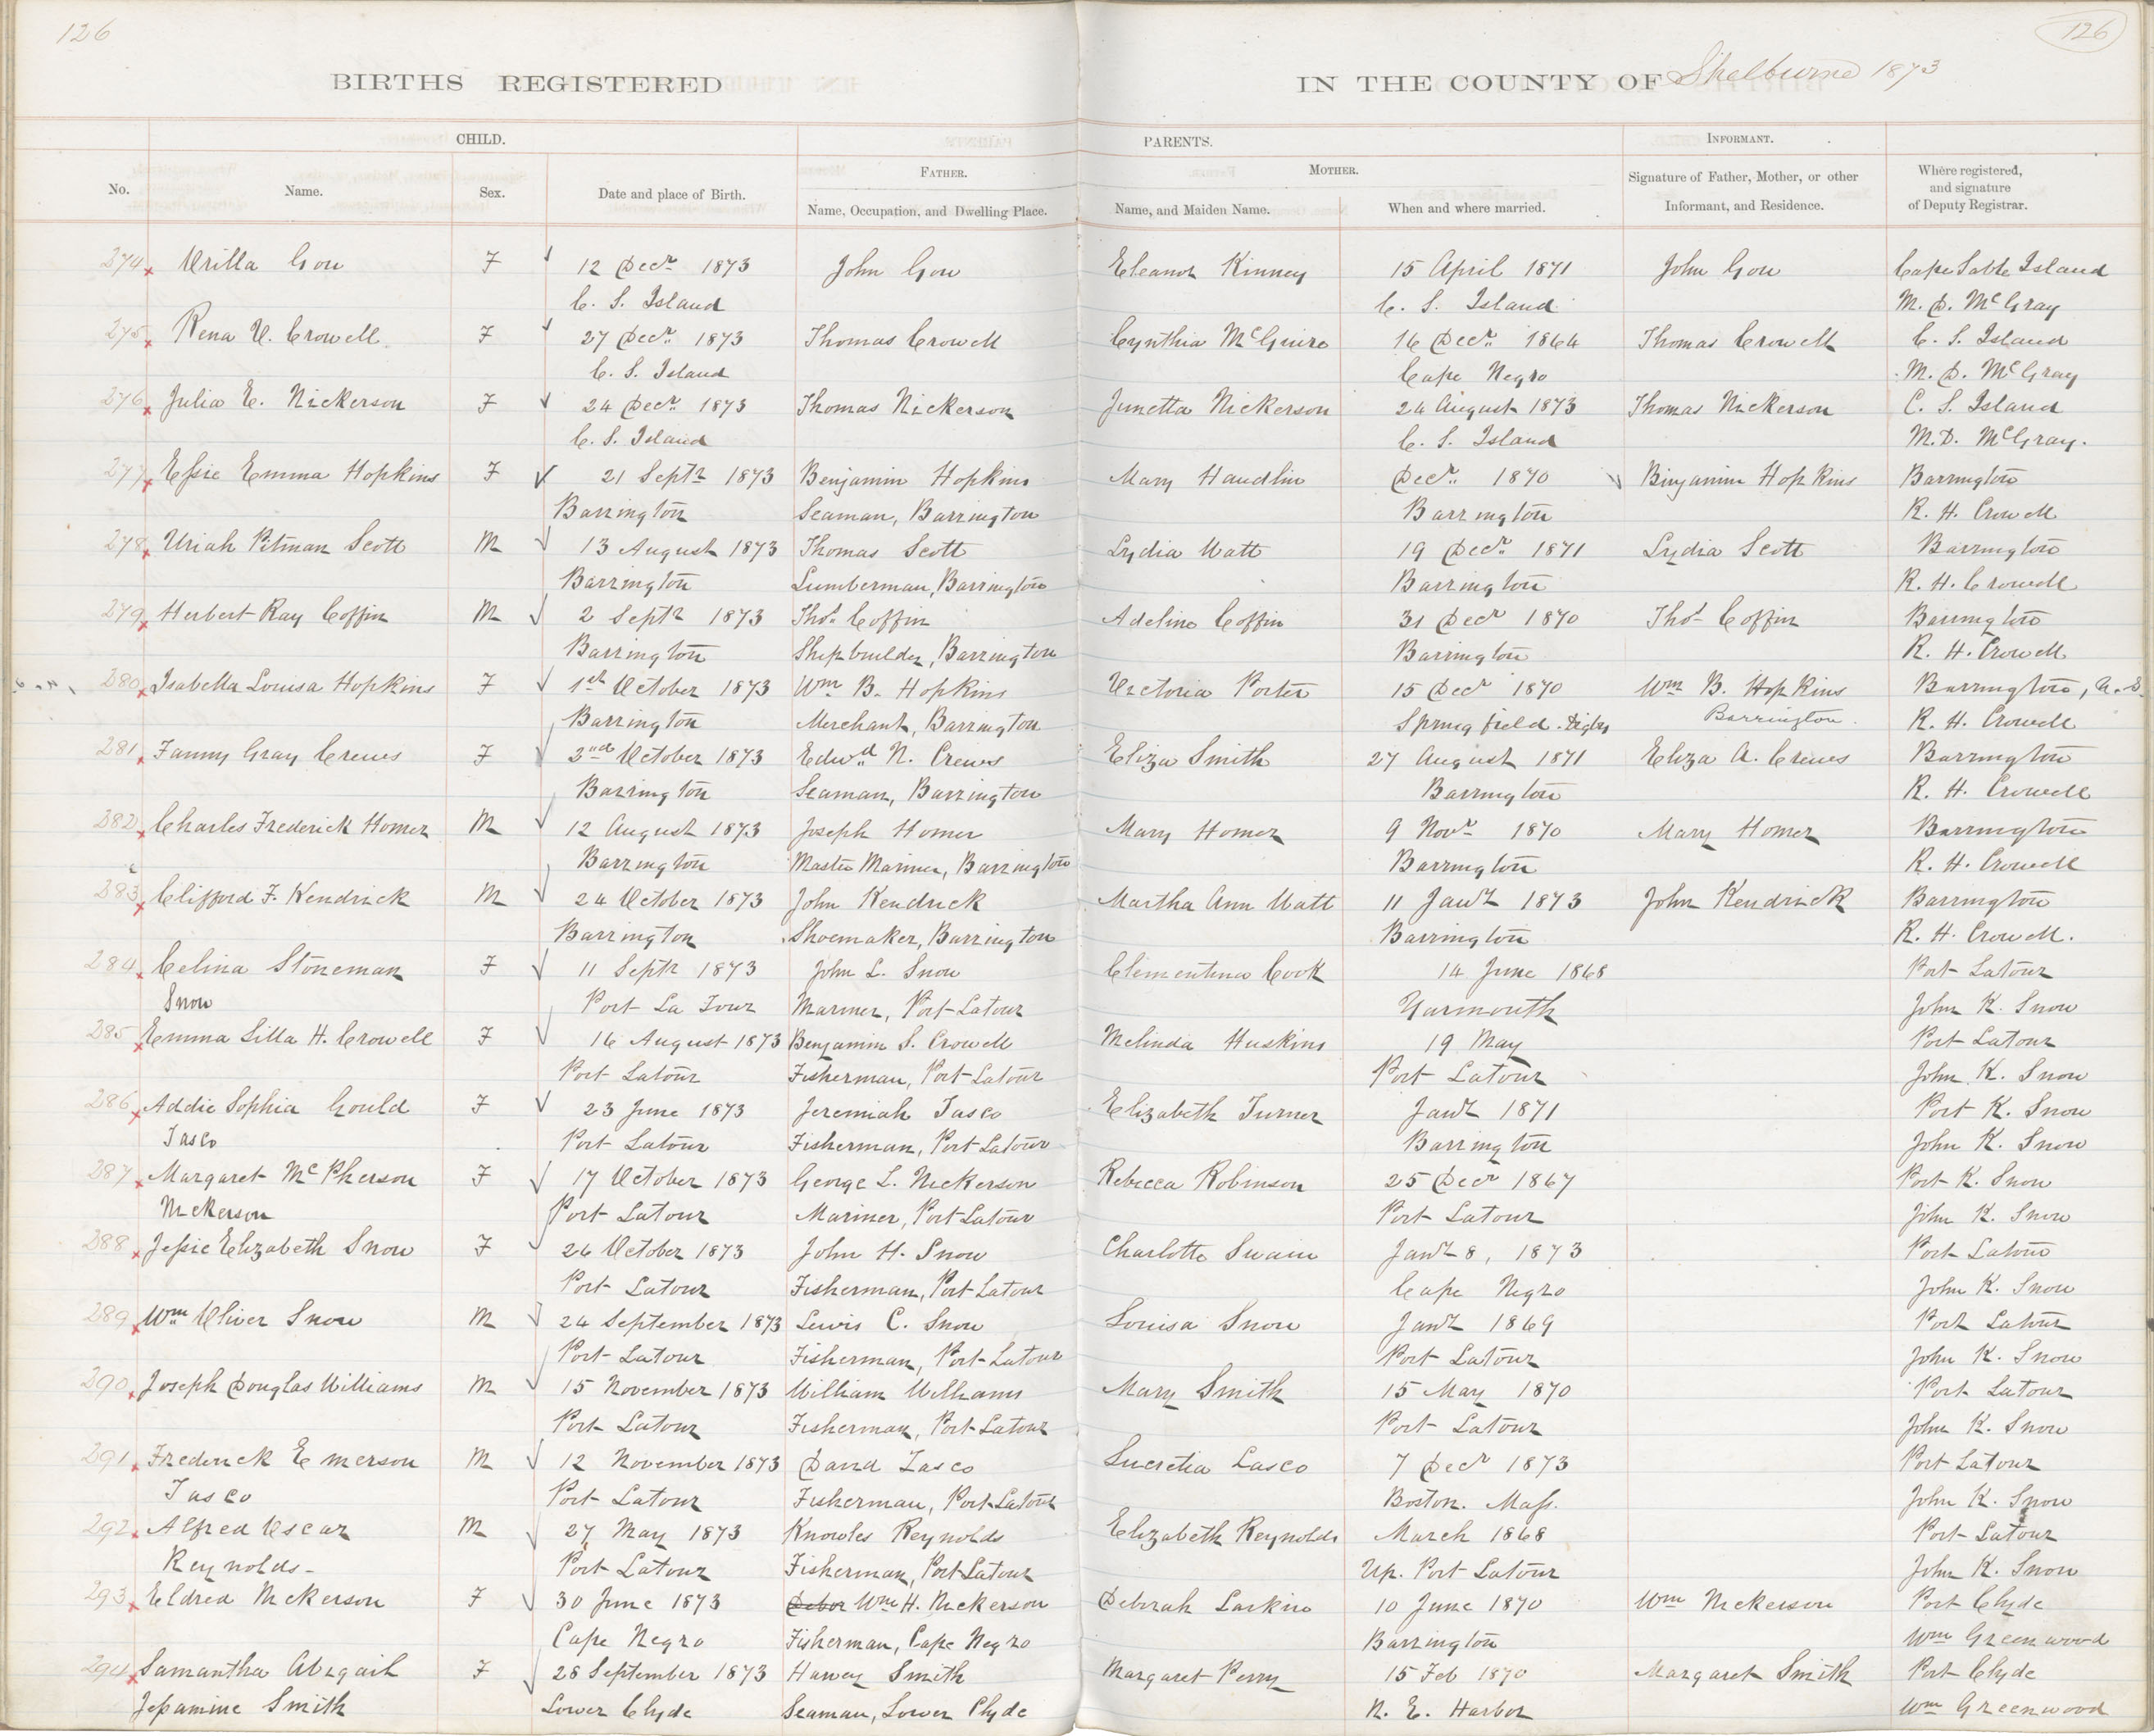 126
126
BIRTHS REGISTERED
IN THE COUNTY OF Shelburne 1873
CHILD.
PARENTS.
INFORMANT.
No.
Name.
Sex.
Date and place of Birth.
FATHER.
Name, Occupation, and Dwelling Place.
MOTHER.
Name, and Maiden Name.
When and where married.
Signature of Father, Mother, or other
Informant, and Residence.
Where registered,
and signature
of Deputy Registrar.
274 Urilla Gou F 12 Decr 1873 John Gou Eleanor Kinney 15 April 1871 John Gou Cape Sable Island
C. S. Island C. S. Island M. D. McGray
275 Rena U. Crowell F 27 Decr 1873 Thomas Crowell Cynthia McGuire 16 Decr 1864 Thomas Crowell C. S. Island
C. S. Island Cape Negro M. D. McGray
276 Julia E. Nickerson F 24 Decr 1873 Thomas Nickerson Junetta Nickerson 24 August 1873 Thomas Nickerson C. S. Island
C. S. Island C. S. Island M. D. McGray.
277 Essie Emma Hopkins F 21 Septr 1873 Benjamin Hopkins Mary Haudlin Decr 1870 Binjamin Hopkins Barrington
Barrington Seaman, Barrington Barrington R. H. Crowell
278 Uriah Pitman Scott M 13 August 1873 Thomas Scott Lydia Watt 19 Decr 1871 Lydia Scott Barrington
Barrington Lumberman, Barrington Barrington R. H. Crowell
279 Herbert Ray Coffin M 2 Septr 1873 Thos Coffin Adeline Coffin 31 Decr 1870 Thos Coffin Barrington
Barrington Shipbuilder, Barrington Barrington R. H. Crowell
280 Isabella Louisa Hopkins F 1st October 1873 Wm B. Hopkins Victoria Porter 15 Decr 1870 Wm B. Hopkins Barrington,
Barrington Merchant, Barrington Springfield. Digby Barrington. R. H. Crowell
281 Fanny Gray Crews F 2nd October 1873 Edwd N. Crews Eliza Smith 27 August 1871 Eliza A. Crews Barrington
Barrington Seaman, Barrington Barrington R. H. Crowell
282 Charles Frederick Homer M 12 August 1873 Joseph Homer Mary Homer 9 Novr 1870 Mary Homer Barrington
Barrington Master Mariner, Barrington Barrington R. H. Crowell
283 Clifford F. Kendrick M 24 October 1873 John Kendrick Martha Ann Watt 11 Jany 1873 John Kendrick Barrington
Barrington Shoemaker, Barrington Barrington R. H. Crowell.
284 Celina Stoneman F 11 Septr 1873 John L. Snow Clementina Cook 14 June 1868 Port Latour
Snow Port La Tour Mariner, Port Latour Yarmouth John K. Snow
285 Emma Lilla H. Crowell F 16 August 1873 Benjamin S. Crowell Melinda Huskins 19 May Port Latour
Port Latour Fisherman, Port Latour Port Latour John K. Snow
286 Addie Sophia Gould F 23 June 1873 Jeremiah Tasco Elizabeth Turner Jany 1871 Port K. Snow
Tasco Port Latour Fisherman, Port Latour Barrington John K. Snow
287 Margaret McPherson F 17 October 1873 George L. Nickerson Rebecca Robinson 25 Decr 1867 Port K. Snow
Nickerson Port Latour Mariner, Port Latour Port Latour John K. Snow
288 Jessie Elizabeth Snow F 26 October 1873 John H. Snow Charlotte Swain Jany 8, 1873 Port Latour
Port Latour Fisherman, Port Latour Cape Negro John K. Snow
289 Wm Oliver Snow M 24 September 1873 Lewis C. Snow Louisa Snow Jany 1869 Port Latour
Port Latour Fisherman, Port Latour Port Latour John K. Snow
290 Joseph Douglas Williams M 15 November 1873 William Williams Mary Smith 15 May 1870 Port Latour
Port Latour Fisherman, Port Latour Port Latour John K. Snow
291 Frederick Emerson M 12 November 1873 David Tasco Lucretia Lasco 7 Decr 1873 Port Latour
Tasco Port Latour Fisherman, Port Latour Boston. Mass. John K. Snow
292 Alfred Oscar M 27 May 1873 Knowles Reynolds Elizabeth Reynolds March 1868 Port Latour
Reynolds Port Latour Fisherman, Port Latour Up. Port Latour John K. Snow
293 Eldred Nickerson F 30 June 1873 Debor Wm H. Nickerson Deborah Larkin 10 June 1870 Wm Nickerson Port Clyde
Cape Negro Fisherman, Cape Negro Barrington Wm Greenwood
294 Samantha Abigail F 28 September 1873 Harvey Smith Margaret Perry 15 Feb 1870 Margaret Smith Port Clyde
Jessamine Smith Lower Clyde Seaman, Lower Clyde N. E. Harbor Wm Greenwood